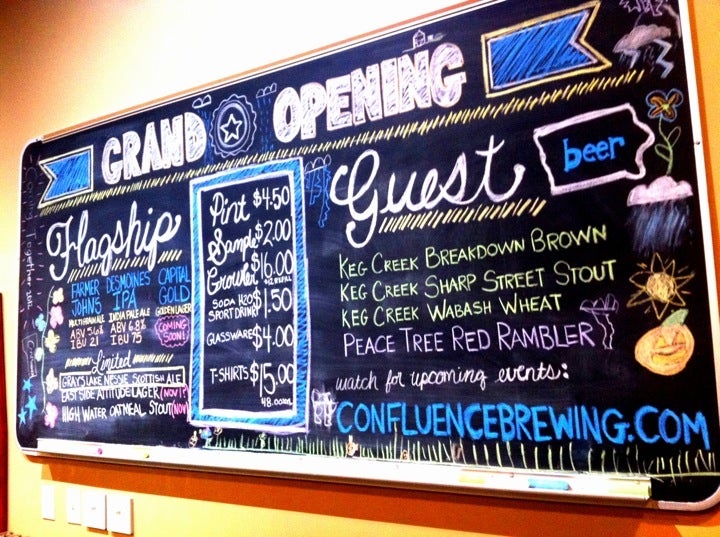 GRAND OPENING
Flagship
FARMER JOHN'S
MULTIGRAIN ALE
ABV 5.6%
IBU 21
DES MOINES IPA
INDIA PALE ALE
ABV 6.8%
IBU 75
CAPITAL GOLD
GOLDEN LAGER
COMING SOON!
Limited
GRAYS LAKE NESSIE SCOTTISH ALE
EAST SIDE ATTITUDE LAGER (NOV!?)
HIGH WATER OATMEAL STOUT (NOV
Pint $4.50
Sample $2.00
Growler $16.00
SODA H2O $1.50
SPORT DRINK
GLASSWARE $4.00
T-SHIRTS $15.00
Guest
beer
KEG CREEK BREAKDOWN BROWN
KEG CREEK SHARP STREET STOUT
KEG CREEK WABASH WHEAT
PEACE TREE RED RAMBLER
watch for upcoming events:
CONFLUENCEBREWING.COM